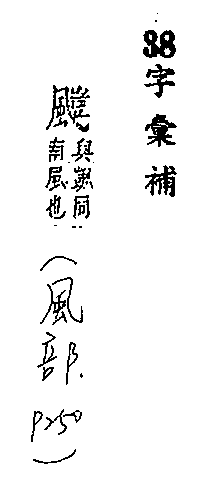 38字彙補
與同
南風也
(風部.P250)